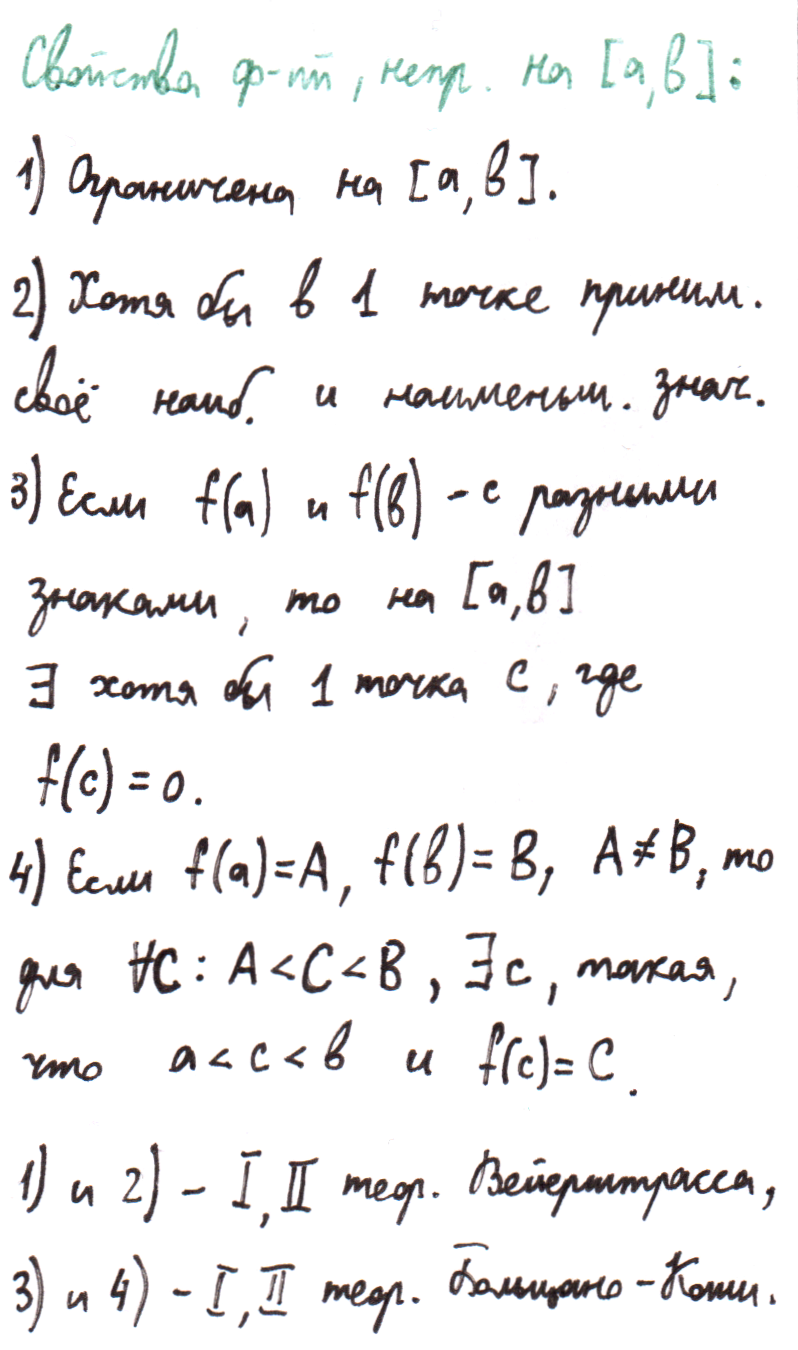 Свойства ф-ий, непр. на [a,b]:
1) Ограничена на [a,b].
2) Хотя бы в 1 точке приним.
своё наиб. и наименьш. знач.
3) Если f(a) и f(b) - с разными
знаками, то на [a,b]
∃ хотя бы 1 точка c, где
f(c)=0.
4) Если f(a)=A, f(b)=B, A≠B, то
для ∀C: A<C<B, ∃c, такая,
что a<c<b и f(c)=C.
1) и 2) - I, II теор. Вейерштрасса,
3) и 4) - I, II теор. Больцано-Коши.